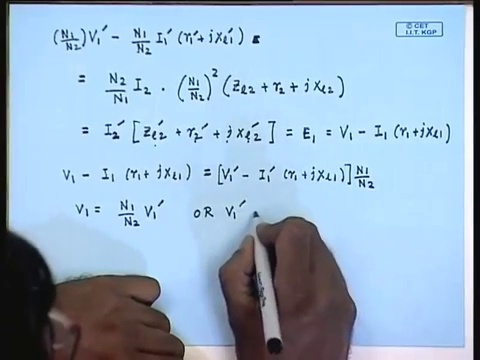 © CET
I.I.T. KGP
(N1/N2)V1′ − N1/N2 I1′ (r1′+jxl1′)
= N2/N1 I2 · (N1/N2)² (Zl2 + r2 + jxl2)
= I2′ [Zl2′ + r2′ + jxl2′] = E1 = V1 − I1(r1+jxl1)
V1 − I1 (r1 + jxl1) = [V1′ − I1′ (r1′+jxl1′)] N1/N2
V1 = N1/N2 V1′ OR V1′